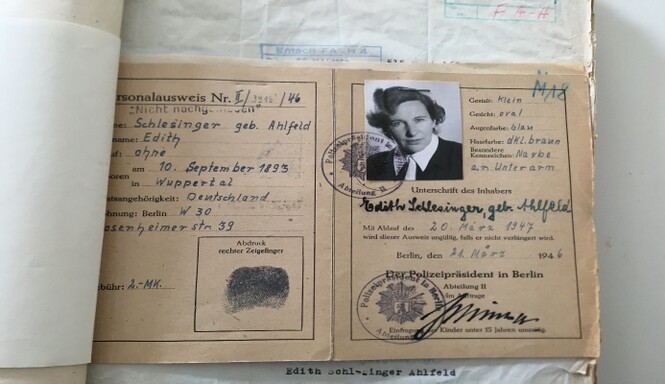 F A-A
ersonalausweis Nr. II/ /46
"Nicht nachgewiesen"
e: Schlesinger geb. Ahlfeld
name: Edith
f: ohne
am 10. September 1893
oren in Wuppertal
atsangehörigkeit: Deutschland
hnung: Berlin W 30
osenheimer str. 39
Abdruck
rechter Zeigefinger
bühr: 2.-MK.
M18
Gestalt: klein
Gesicht: oval
Augenfarbe: blau
Haarfarbe: dkl. braun
Besondere
Kennzeichen: Narbe
an Unterarm
Polizeipräsident in
Abteilung II
Unterschrift des Inhabers
Edith Schlesinger, geb. Ahlfeld
Mit Ablauf des 20. März 1947
wird dieser Ausweis ungültig, falls er nicht verlängert wird.
Berlin, den 21. März 1946
Der Polizeipräsident in Berlin
Abteilung II
Im Auftrage
Polizeipräsident in Berlin
Abteilung
Eintragung der Kinder unter 15 Jahren umseitig.
Edith Schl-singer Ahlfeld